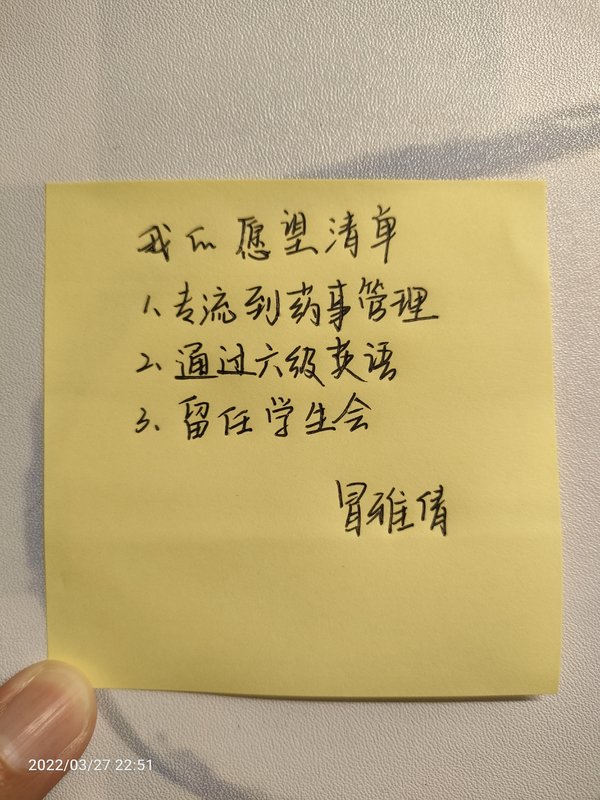 我的愿望清单
1、专流到药事管理
2、通过六级英语
3、留任学生会
冒雅倩
2022/03/27 22:51